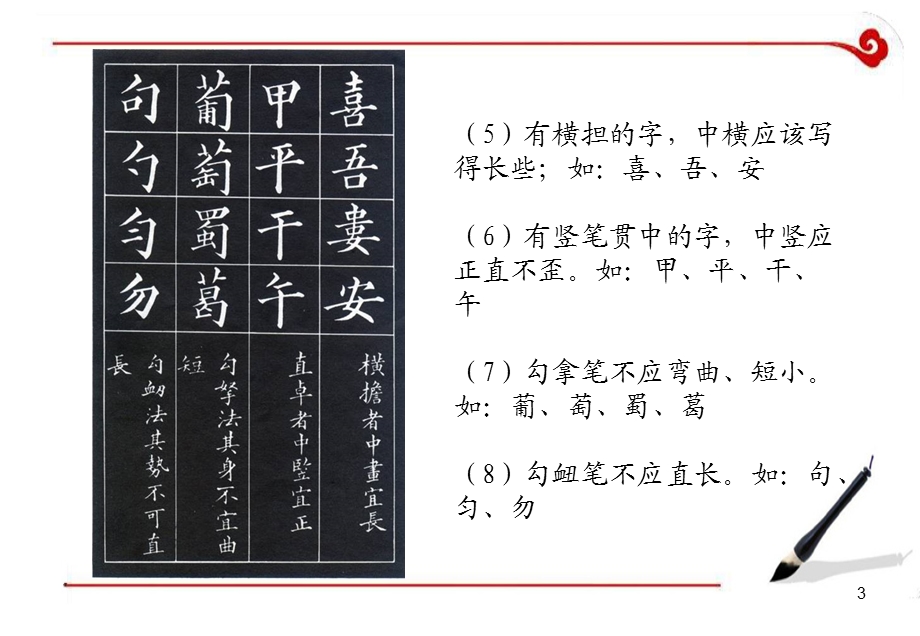 喜吾婁安
橫擔者中畫宜長
甲平干午
直卓者中竪宜正
葡萄蜀葛
勾拏法其身不宜曲
短
句勺匀勿
勾衂法其勢不可直
長
（5）有横担的字，中横应该写
得长些；如：喜、吾、安
（6）有竖笔贯中的字，中竖应
正直不歪。如：甲、平、干、
午
（7）勾拿笔不应弯曲、短小。
如：葡、萄、蜀、葛
（8）勾衄笔不应直长。如：句、
匀、勿
3